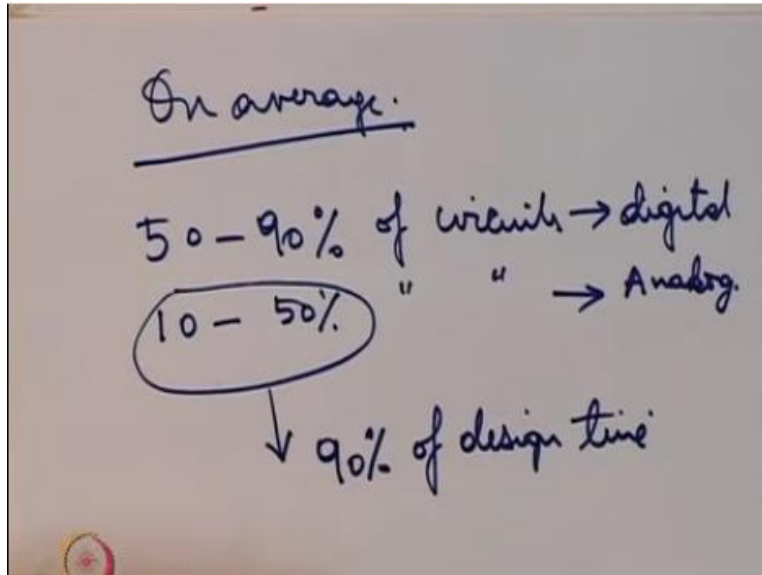 On average.
50-90% of circuits → digital
10 - 50% " " → Analog.
↓ 90% of design time